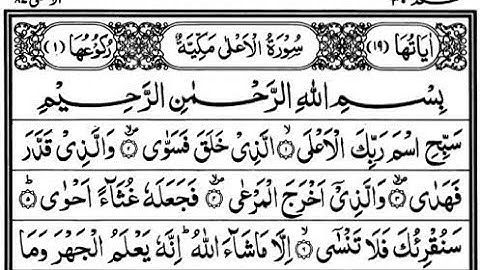 اٰيَاتُهَا (١٩) سُوْرَةُ الْاَعْلٰى مَكِّيَّةٌ رُكُوْعُهَا (١)
بِسْمِ اللهِ الرَّحْمٰنِ الرَّحِيْمِ
سَبِّحِ اسْمَ رَبِّكَ الْاَعْلَى ۙ‏﴿١﴾ الَّذِىْ خَلَقَ فَسَوّٰى ۙ‏﴿٢﴾ وَالَّذِىْ قَدَّرَ
فَهَدٰى ۙ‏﴿٣﴾ وَالَّذِىْۤ اَخْرَجَ الْمَرْعٰى ۙ‏﴿٤﴾ فَجَعَلَهٗ غُثَآءً اَحْوٰى ؕ‏﴿٥﴾
سَنُقْرِئُكَ فَلَا تَنْسٰٓى ۙ‏﴿٦﴾ اِلَّا مَا شَآءَ اللّٰهُ ؕ اِنَّهٗ يَعْلَمُ الْجَهْرَ وَمَا